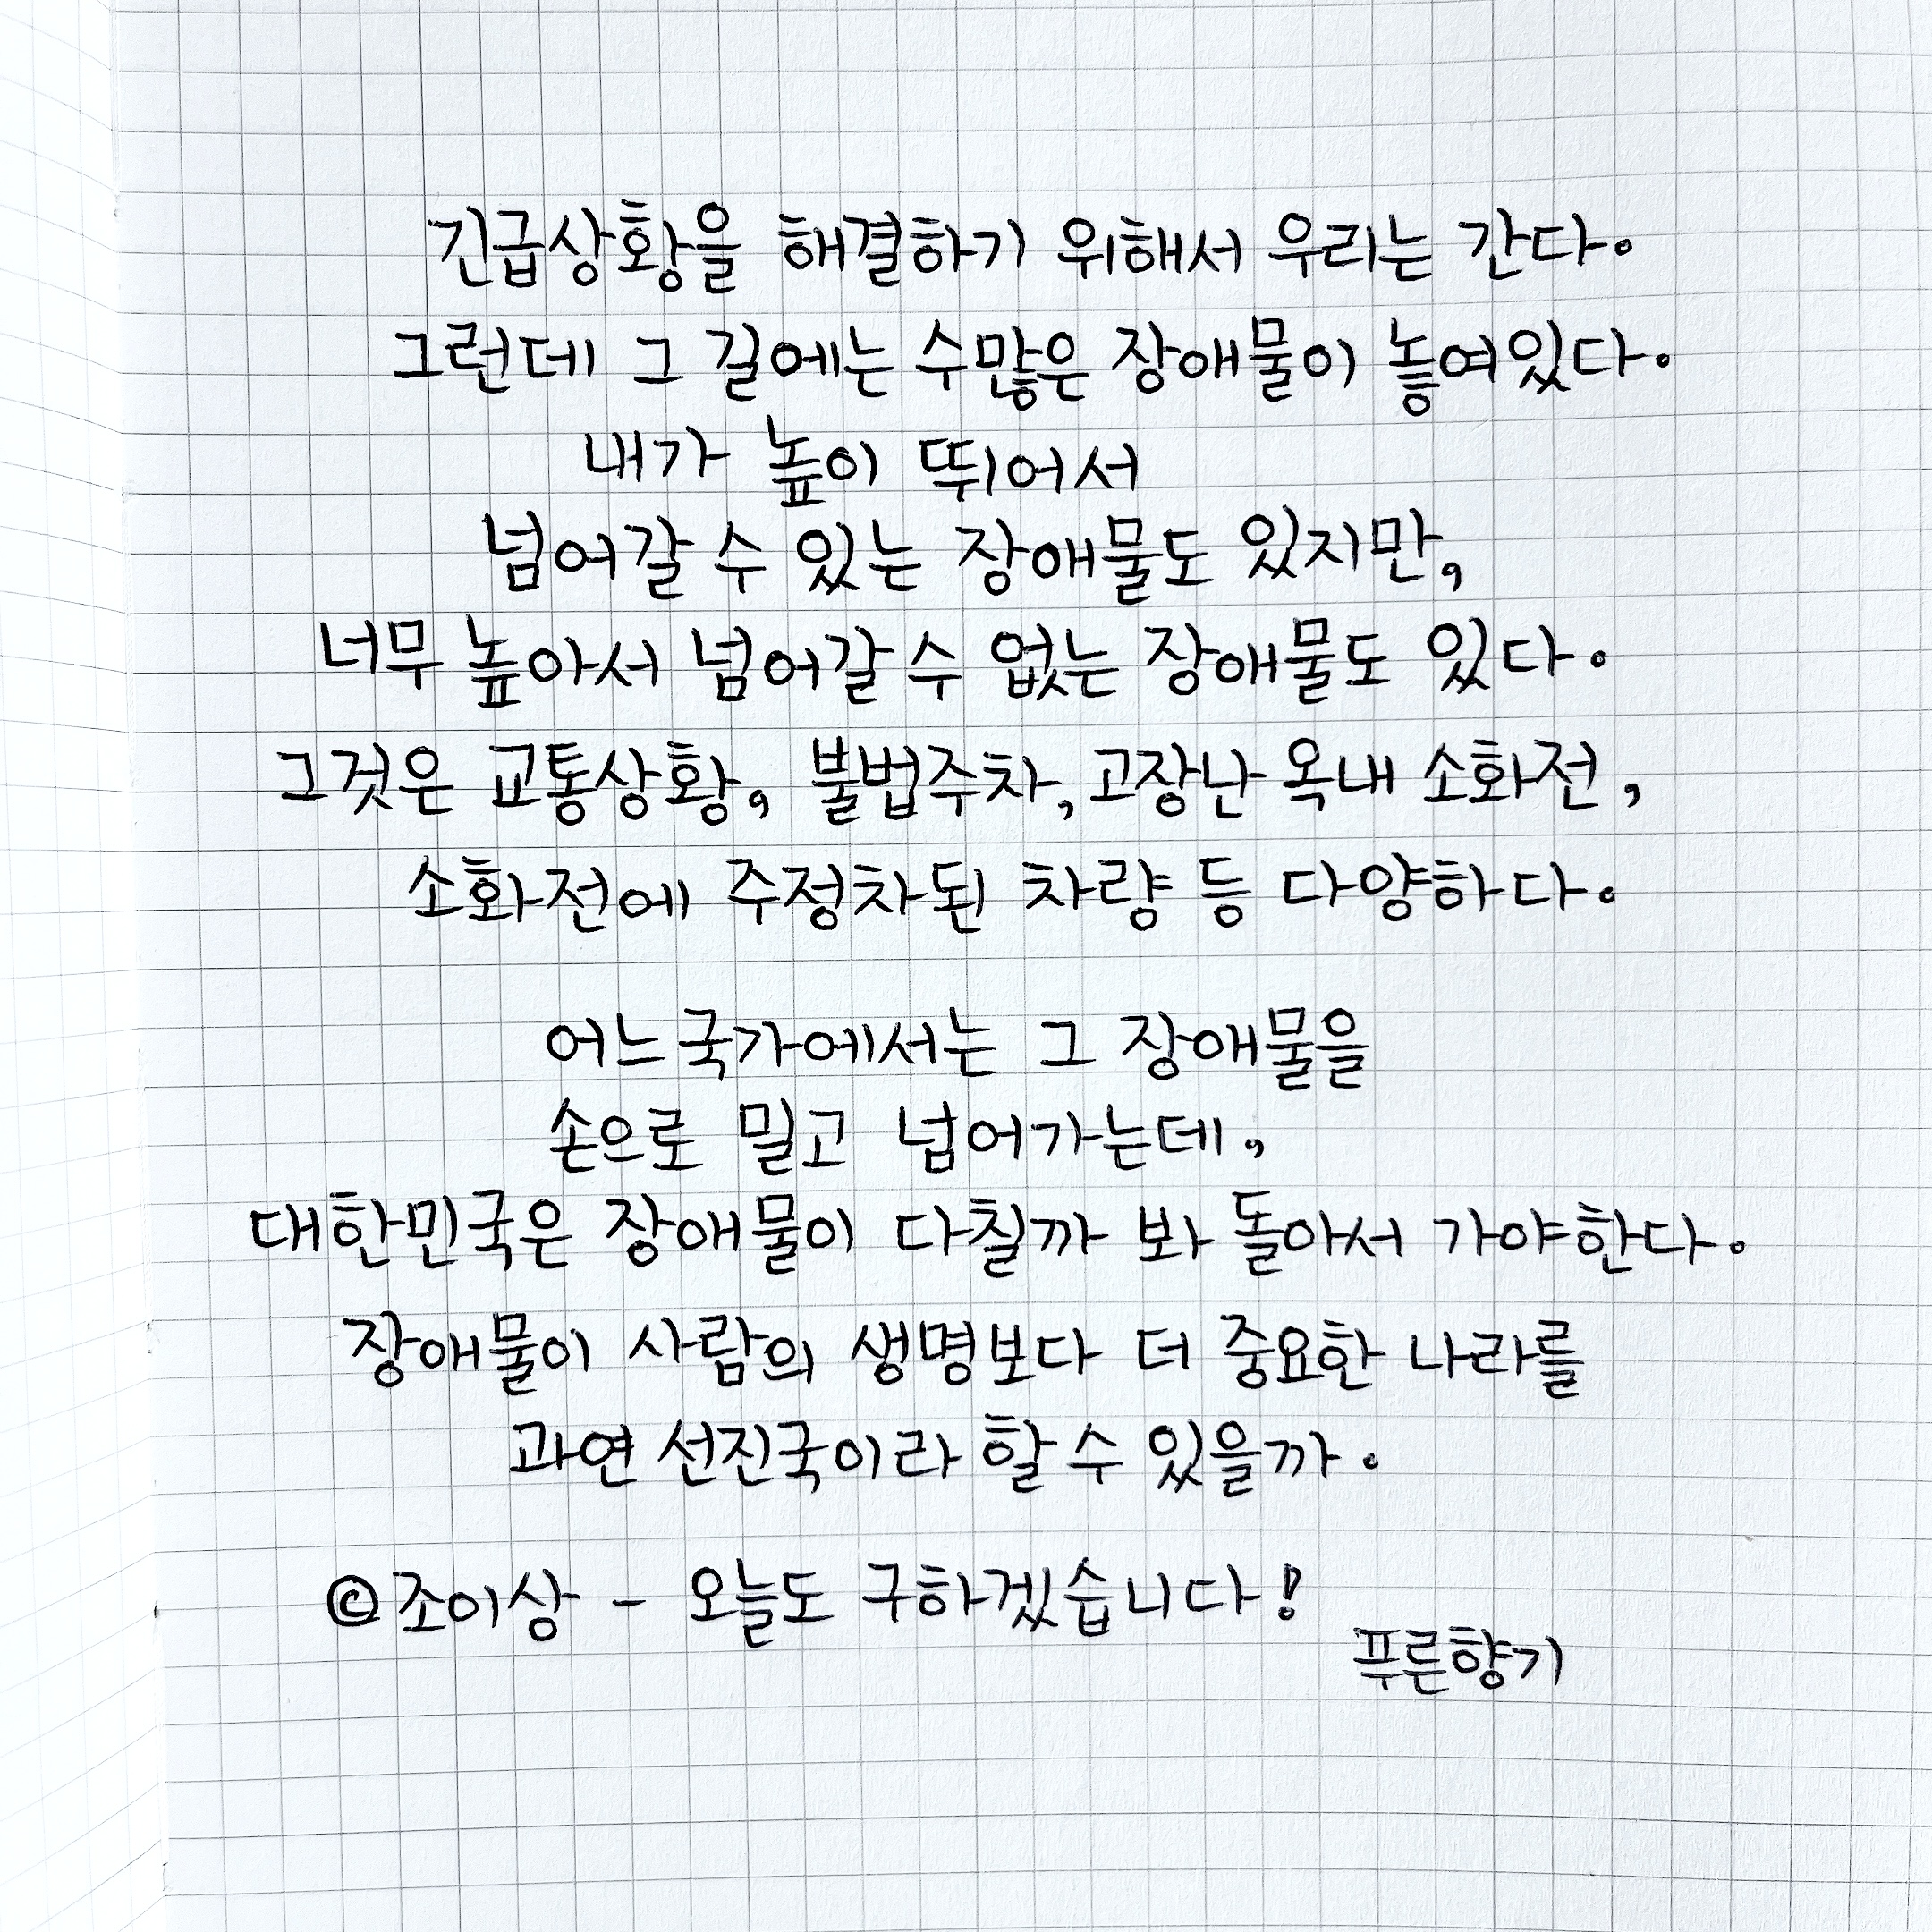 긴급상황을 해결하기 위해서 우리는 간다.
그런데 그 길에는 수많은 장애물이 놓여있다.
내가 높이 뛰어서
넘어갈 수 있는 장애물도 있지만,
너무 높아서 넘어갈 수 없는 장애물도 있다.
그것은 교통상황, 불법주차, 고장난 옥내 소화전,
소화전에 주정차된 차량 등 다양하다.
어느 국가에서는 그 장애물을
손으로 밀고 넘어가는데,
대한민국은 장애물이 다칠까 봐 돌아서 가야한다.
장애물이 사람의 생명보다 더 중요한 나라를
과연 선진국이라 할 수 있을까.
©조이상 - 오늘도 구하겠습니다!
푸른향기